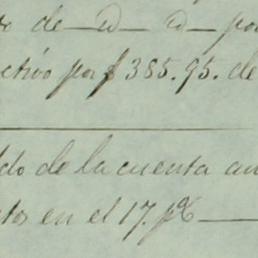 de — id — id — po
ctivo por $ 385.95. de
ldo de la cuenta an
tos en el 17. p%